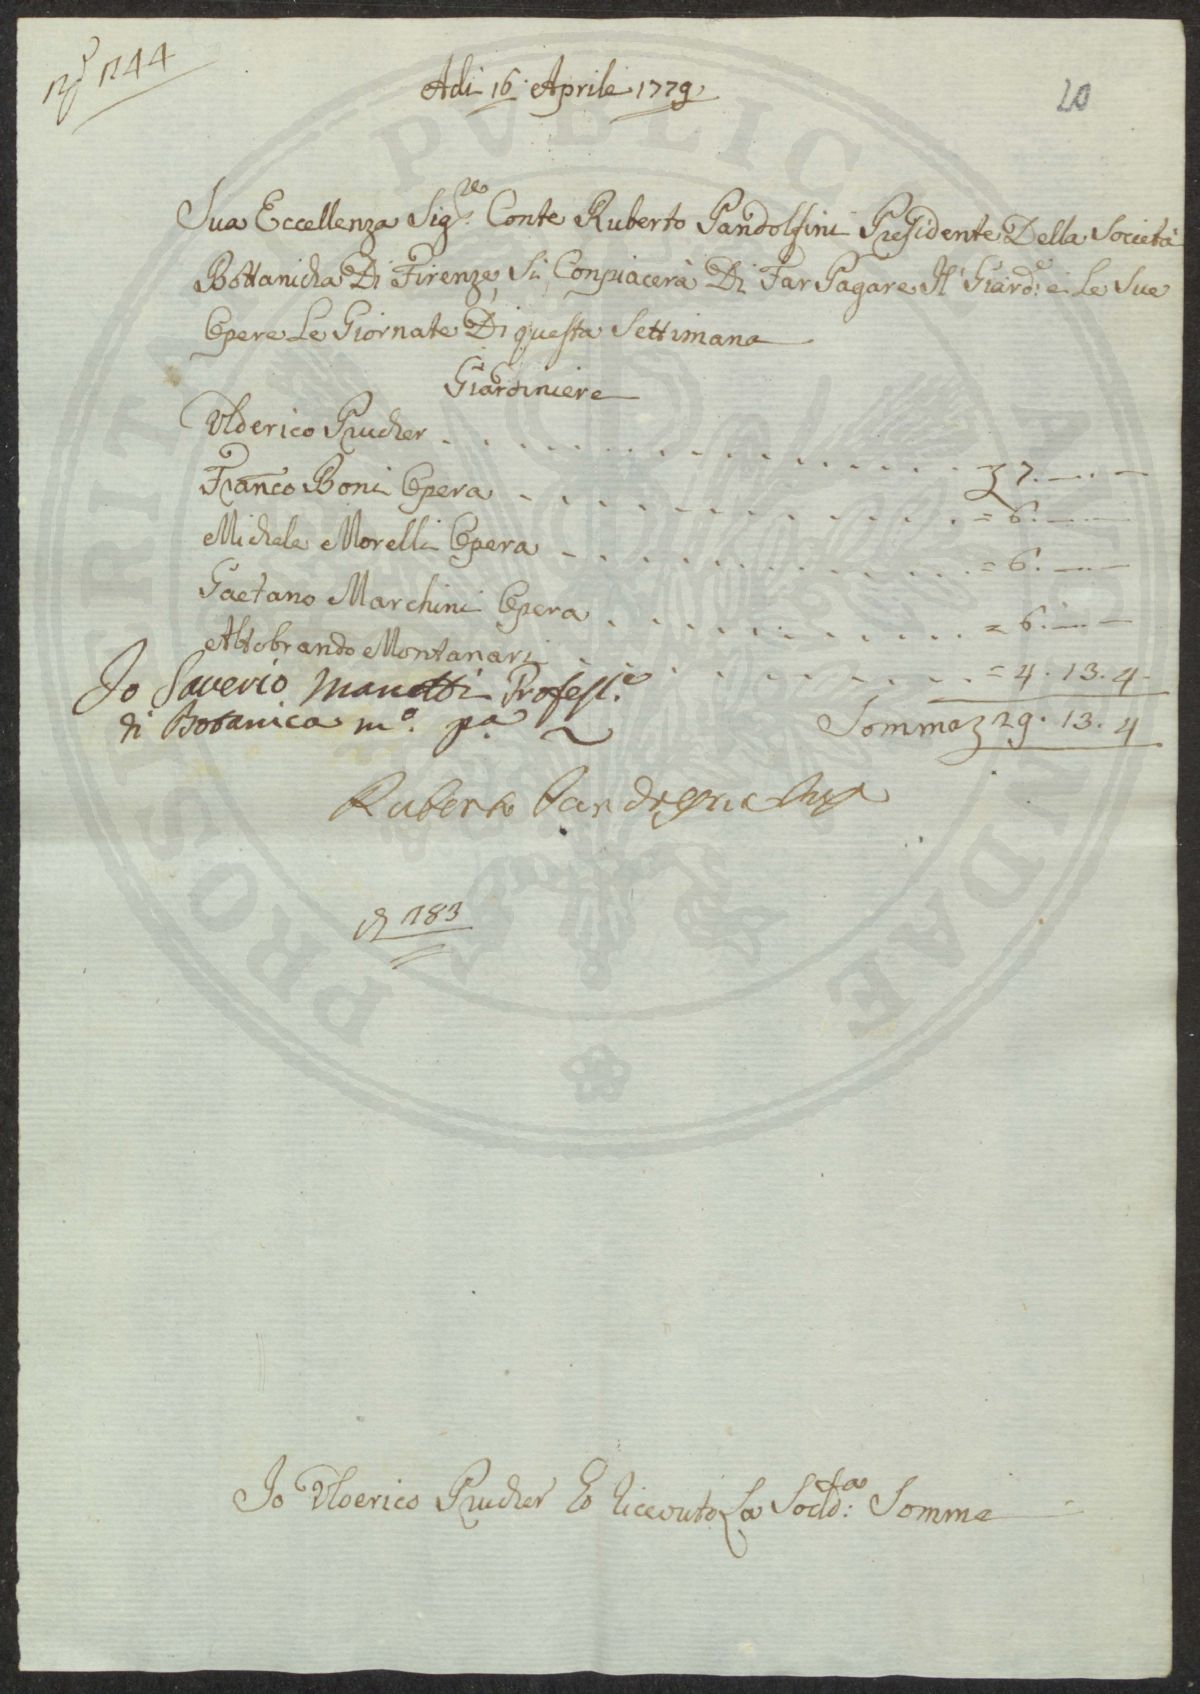 N° 1744
Adi 16 Aprile 1779
20
Sua Eccellenza Sig.re Conte Ruberto Pandolfini Presidente Della Società
Bottanicha Di Firenze, Si Conpiacerà Di Far Pagare Il Giard.e e Le Sue
Opere Le Giornate Di questa Settimana
Giardiniere
Ulderico Prucher . . . . . . . . . . . . . . . . £ 7. —. —
Franco Boni Opera . . . . . . . . . . . . . . = 6. —. —
Michele Morelli Opera . . . . . . . . . . . . = 6. —. —
Gaetano Marchini Opera . . . . . . . . . . = 6. —. —
Aldobrando Montanari . . . . . . . . . . . = 4. 13. 4
Io Saverio Manetti Profess.e
di Botanica m.o p.a
Somma £ 29. 13. 4
Ruberto
183
Io Ulderico Prucher ò riceuto La Sodd.ta Somma
PUBLIC
PROSPERITATI